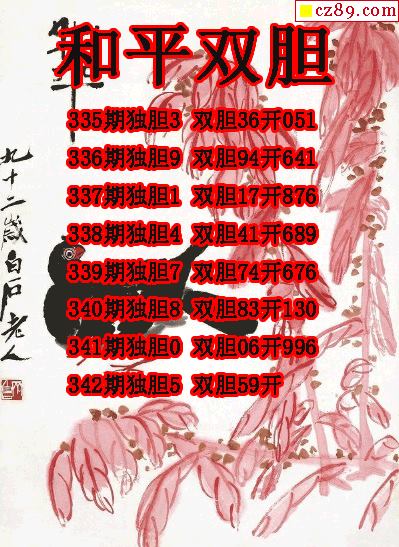 cz89.com
和平双胆
335期独胆3 双胆36开051
336期独胆9 双胆94开641
337期独胆1 双胆17开876
338期独胆4 双胆41开689
339期独胆7 双胆74开676
340期独胆8 双胆83开130
341期独胆0 双胆06开996
342期独胆5 双胆59开
九十二岁白石老人